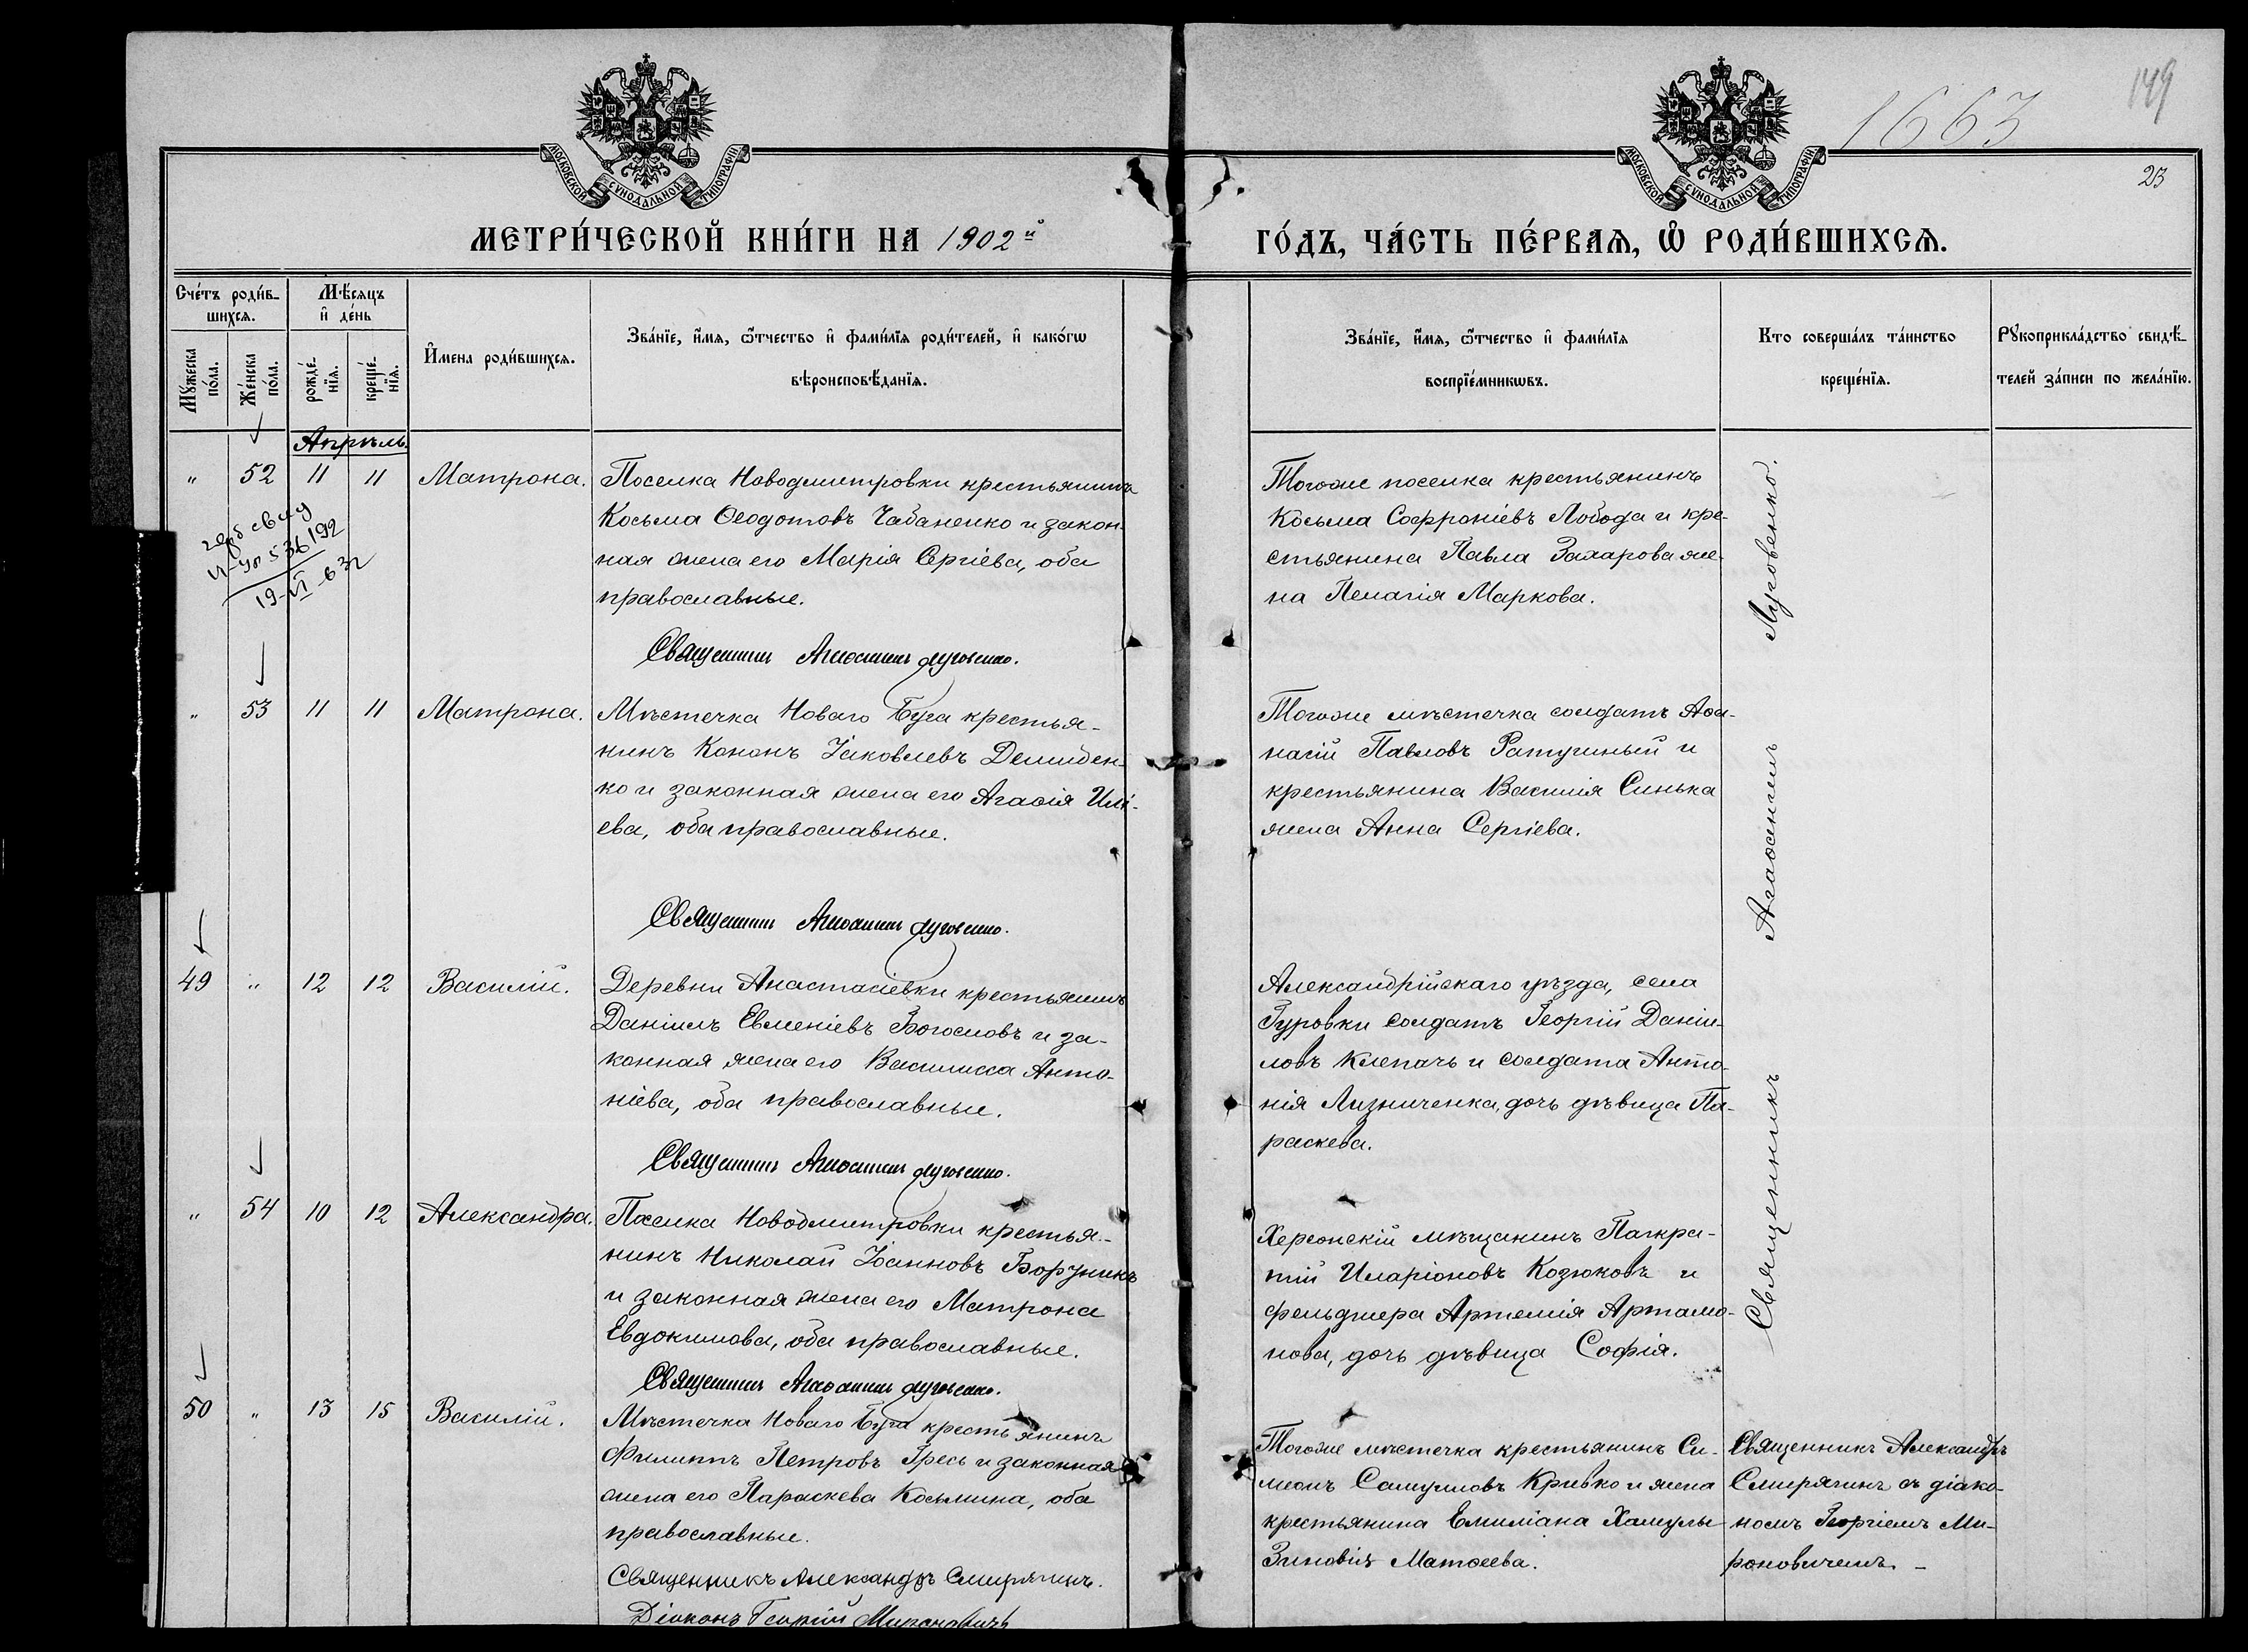 1663
149
23
МОСКОВСКОЙ СѴНОДАЛЬНОЙ ТИПОГРАФІИ
МОСКОВСКОЙ СѴНОДАЛЬНОЙ ТИПОГРАФІИ
МЕТРИ́ЧЕСКОЙ КНИ́ГИ НА 1902й
ГО́ДЪ, ЧА́СТЬ ПЕ́РВАѦ, Ѽ РОДИ́ВШИХСѦ.
Сче́тъ роди́в-
шихсѧ.
Мꙋ́жеска по́ла.
Же́нска по́ла.
Мѣ́сѧцъ
и҆ де́нь
рожде́-
нїѧ.
креще́-
нїѧ.
И҆мена роди́вшихсѧ.
Зва́нїе, и҆́мѧ, ѻ҆́тчество и҆ фами́лїѧ роди́телей, и҆ како́гѡ
вѣроисповѣ́данїѧ.
Зва́нїе, и҆́мѧ, ѻ҆́тчество и҆ фами́лїѧ
воспрїе́мникѡвъ.
Кто соверша́лъ та́инство
креще́нїѧ.
Рꙋкоприкла́дство свидѣ́-
телей за́писи по жела́нїю.
Апрѣль.
" 52 11 11 Матрона.
Поселка Новодмитровки крестьянинъ
Косьма Ѳеодотовъ Чабаненко и закон-
ная жена его Марія Сергіева, оба
православные.
Священникъ Агаѳангелъ Луговенко.
19-VI-63г
Тогоже поселка крестьянинъ
Косьма Софроніевъ Лобода и кре-
стьянина Павла Захарова же-
на Пелагія Маркова.
" 53 11 11 Матрона.
Мѣстечка Новаго Буга крестья-
нинъ Кононъ Іаковлевъ Демиден-
ко и законная жена его Агаѳія Илі-
ева, оба православные.
Священникъ Агаѳангелъ Луговенко.
Тогоже мѣстечка солдатъ Аѳа-
насій Павловъ Ратушный и
крестьянина Василія Синька
жена Анна Сергіева.
49 " 12 12 Василій.
Деревни Анастасіевки крестьянинъ
Даніилъ Евменіевъ Богословъ и за-
конная жена его Василисса Анто-
ніева, оба православные.
Священникъ Агаѳангелъ Луговенко.
Александрійскаго уѣзда, села
Гуровки солдатъ Георгій Даніи-
ловъ Клепачъ и солдата Анто-
нія Лизниченка, дочь дѣвица Па-
раскева.
" 54 10 12 Александра.
Поселка Новодмитровки крестья-
нинъ Николай Іоанновъ Борзникъ
и законная жена его Матрона
Евдокимова, оба православные.
Священникъ Агаѳангелъ Луговенко.
Херсонскій мѣщанинъ Панкра-
тій Иларіоновъ Козюковъ и
фельдшера Артемія Артамо-
нова, дочь дѣвица Софія.
Священникъ Агаѳангелъ Луговенко.
50 " 13 15 Василій.
Мѣстечка Новаго Буга крестьянинъ
Филиппъ Петровъ Гресь и законная
жена его Параскева Косьмина, оба
православные.
Священникъ Александръ Смирягинъ.
Діаконъ Георгій Мироновичъ
Тогоже мѣстечка крестьянинъ Си-
меонъ Самуиловъ Кривко и жена
крестьянина Емиліана Хамулы
Зиновія Матѳеева.
Священникъ Александръ
Смирягинъ съ діако-
номъ Георгіемъ Ми-
роновичемъ. -